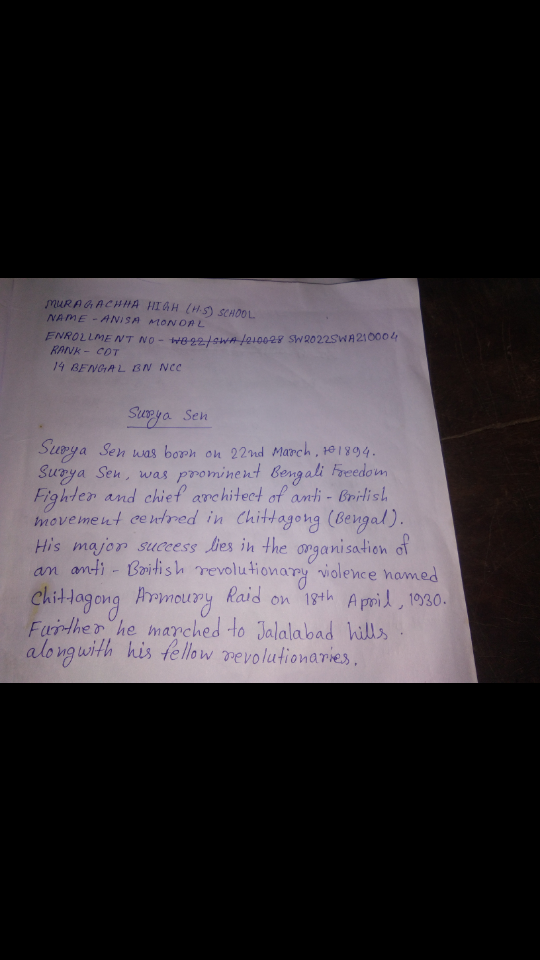 MURAGACHHA HIGH (H.S) SCHOOL
NAME - ANISA MONDAL
ENROLLMENT NO - WB22/SWA/210028 SW2022SWA210004
RANK - CDT
14 BENGAL BN NCC
Surya Sen
Surya Sen was born on 22nd March, 1894.
Surya Sen, was prominent Bengali Freedom
Fighter and chief architect of anti - British
movement centred in Chittagong (Bengal).
His major success lies in the organisation of
an anti - British revolutionary violence named
Chittagong Armoury Raid on 18th April, 1930.
Further he marched to Jalalabad hills.
alongwith his fellow revolutionaries.